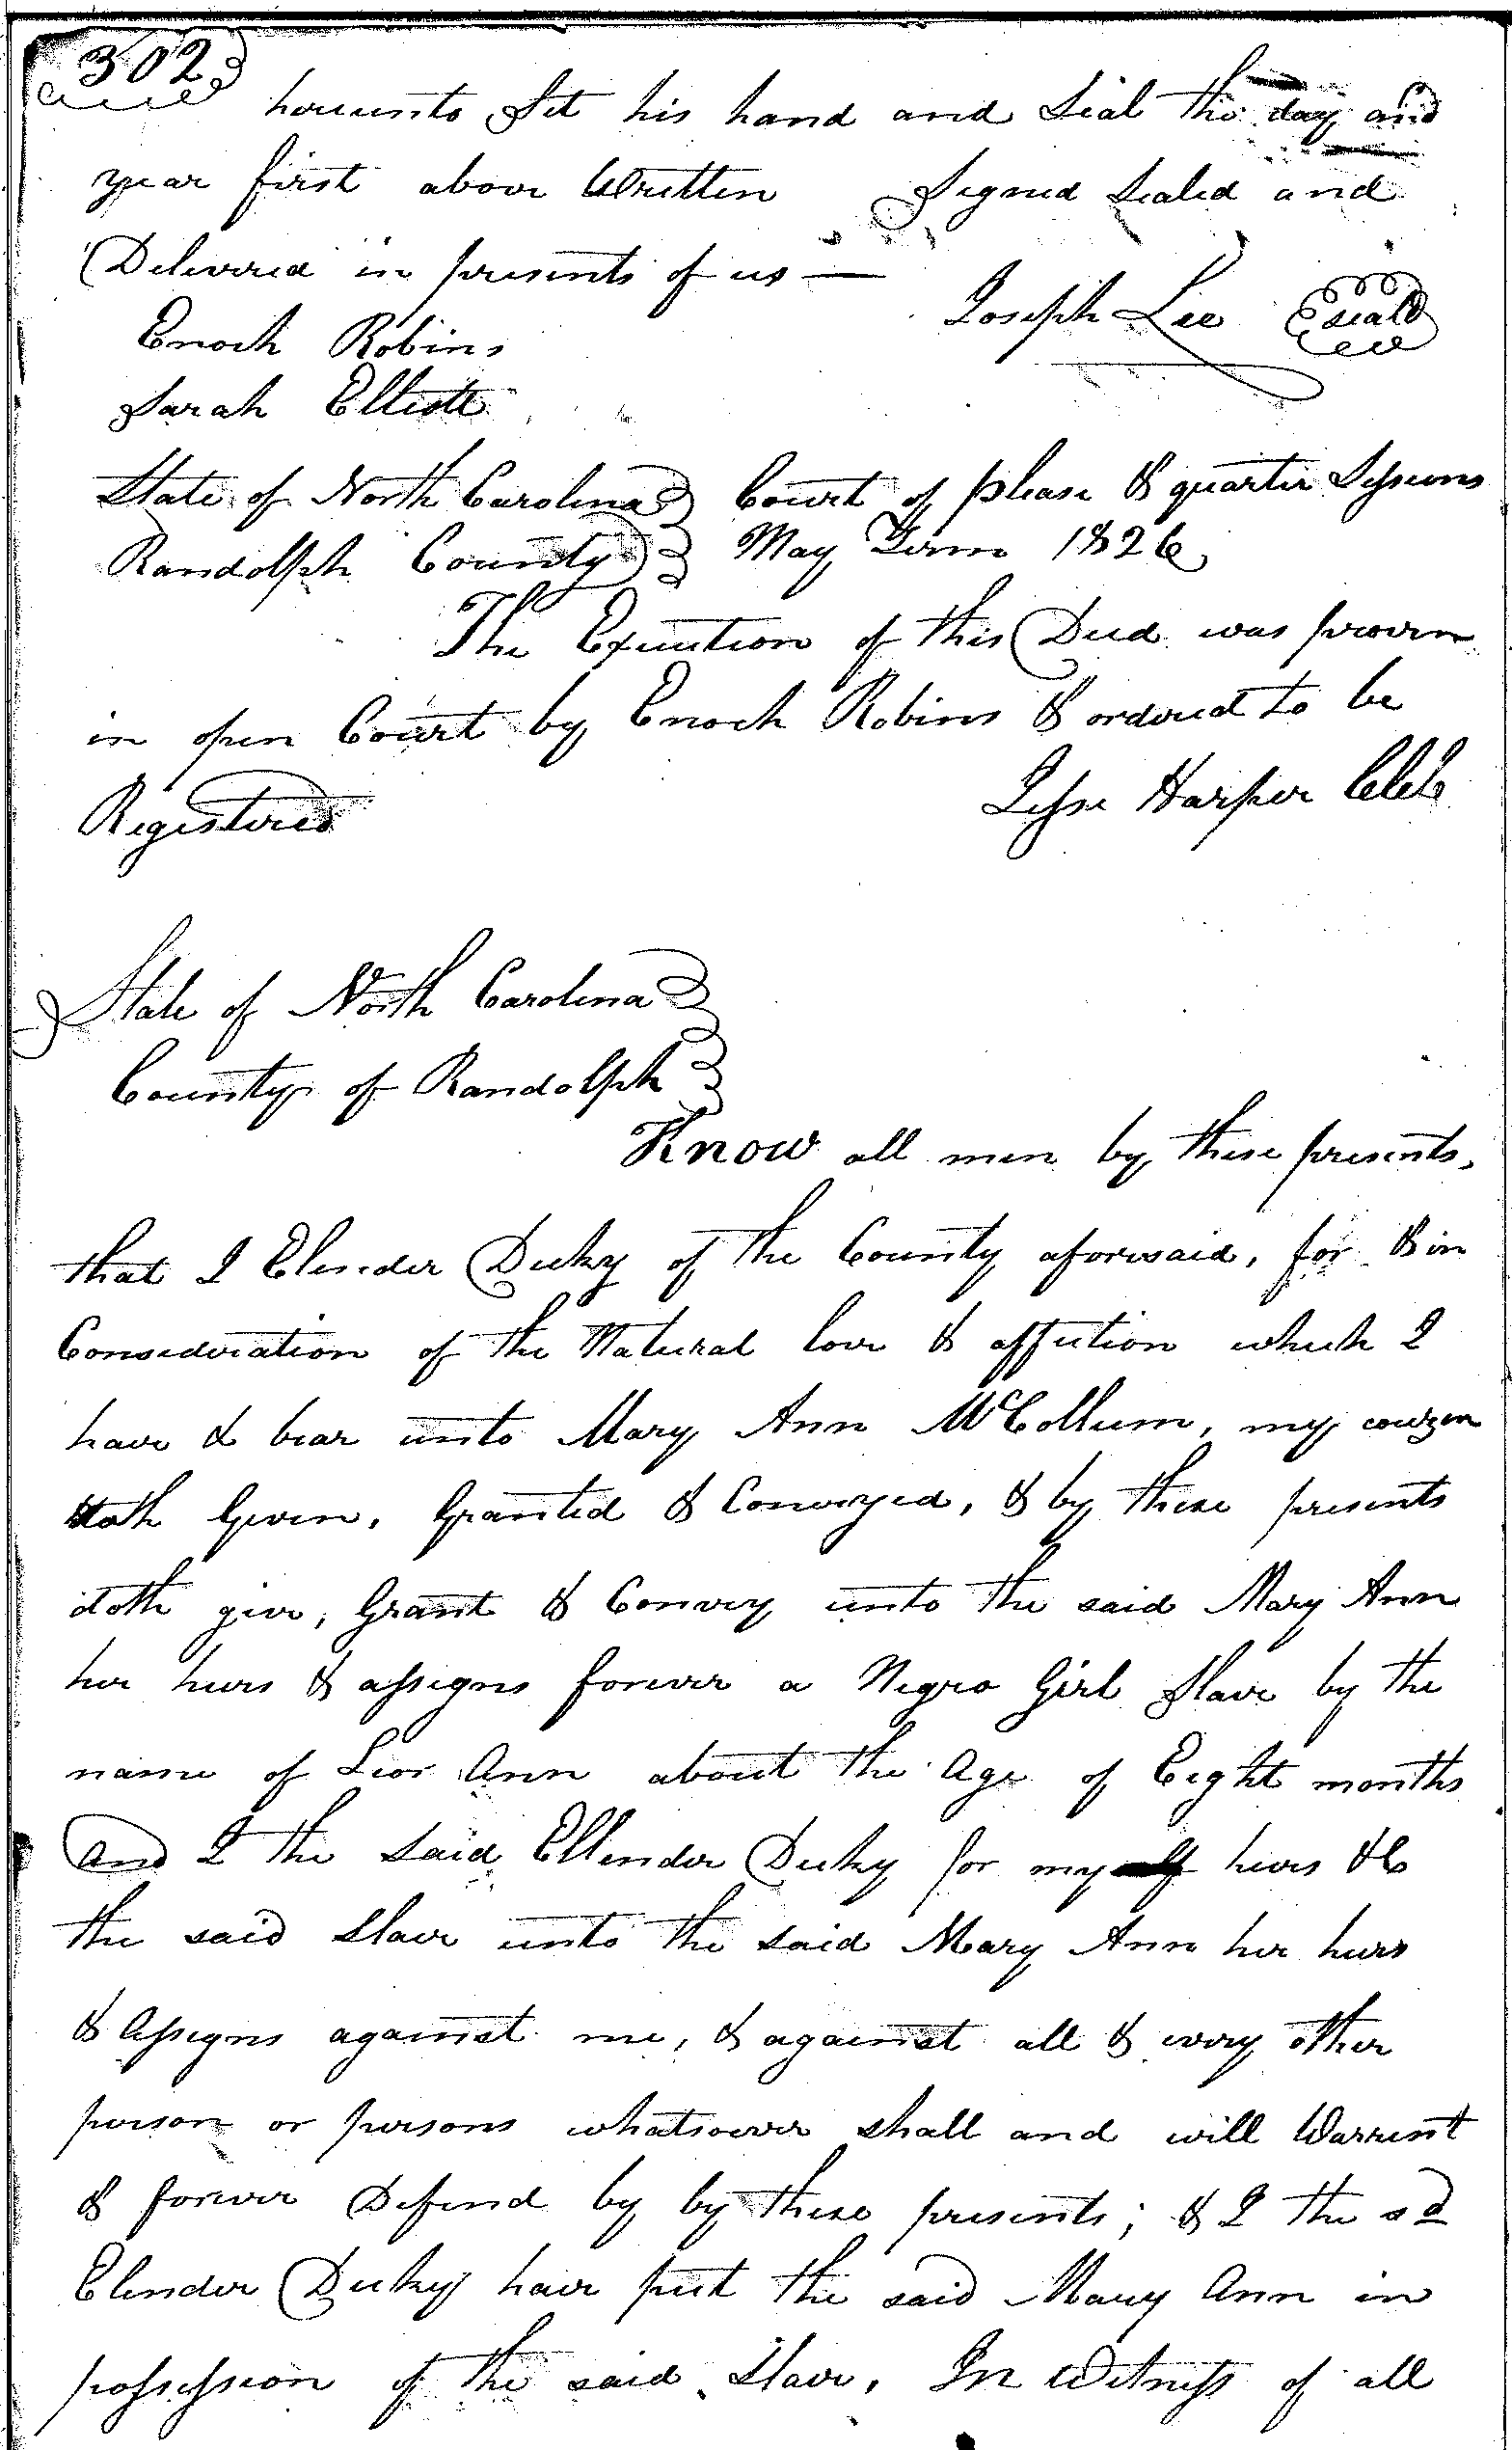 302
hereunto Set his hand and Seal the day and
year first above Written Signed Sealed and
Delivered in presents of us —
Joseph Lee Seal
Enoch Robins
Sarah Elliott
State of North Carolina Court of please & quarter Sessions
Randolph County May Term 1826
The Execution of this Deed was proven
in open Court by Enoch Robins & ordered to be
Registered Jesse Harper CCC
State of North Carolina
County of Randolph
Know all men by these presents,
that I Elender Dicky of the County aforesaid, for & in
Consideration of the Natural love & affection which I
have & bear unto Mary Ann McCollum, my couzen
doth Given, Granted & Conveyed, & by these presents
doth give, Grant & Convey unto the said Mary Ann
her heirs & assigns forever a Negro Girl Slave by the
name of Ann about the Age of Eight months
And I the Said Ellender Dicky for my heirs &C
the said Slave unto the said Mary Ann her heirs
& Assigns against me, & against all & every other
person or persons whatsoever shall and will Warrent
& forever Defend by by these presents; & I the sd
Elender Dicky have put the said Mary Ann in
possession of the said Slave, In Witness of all